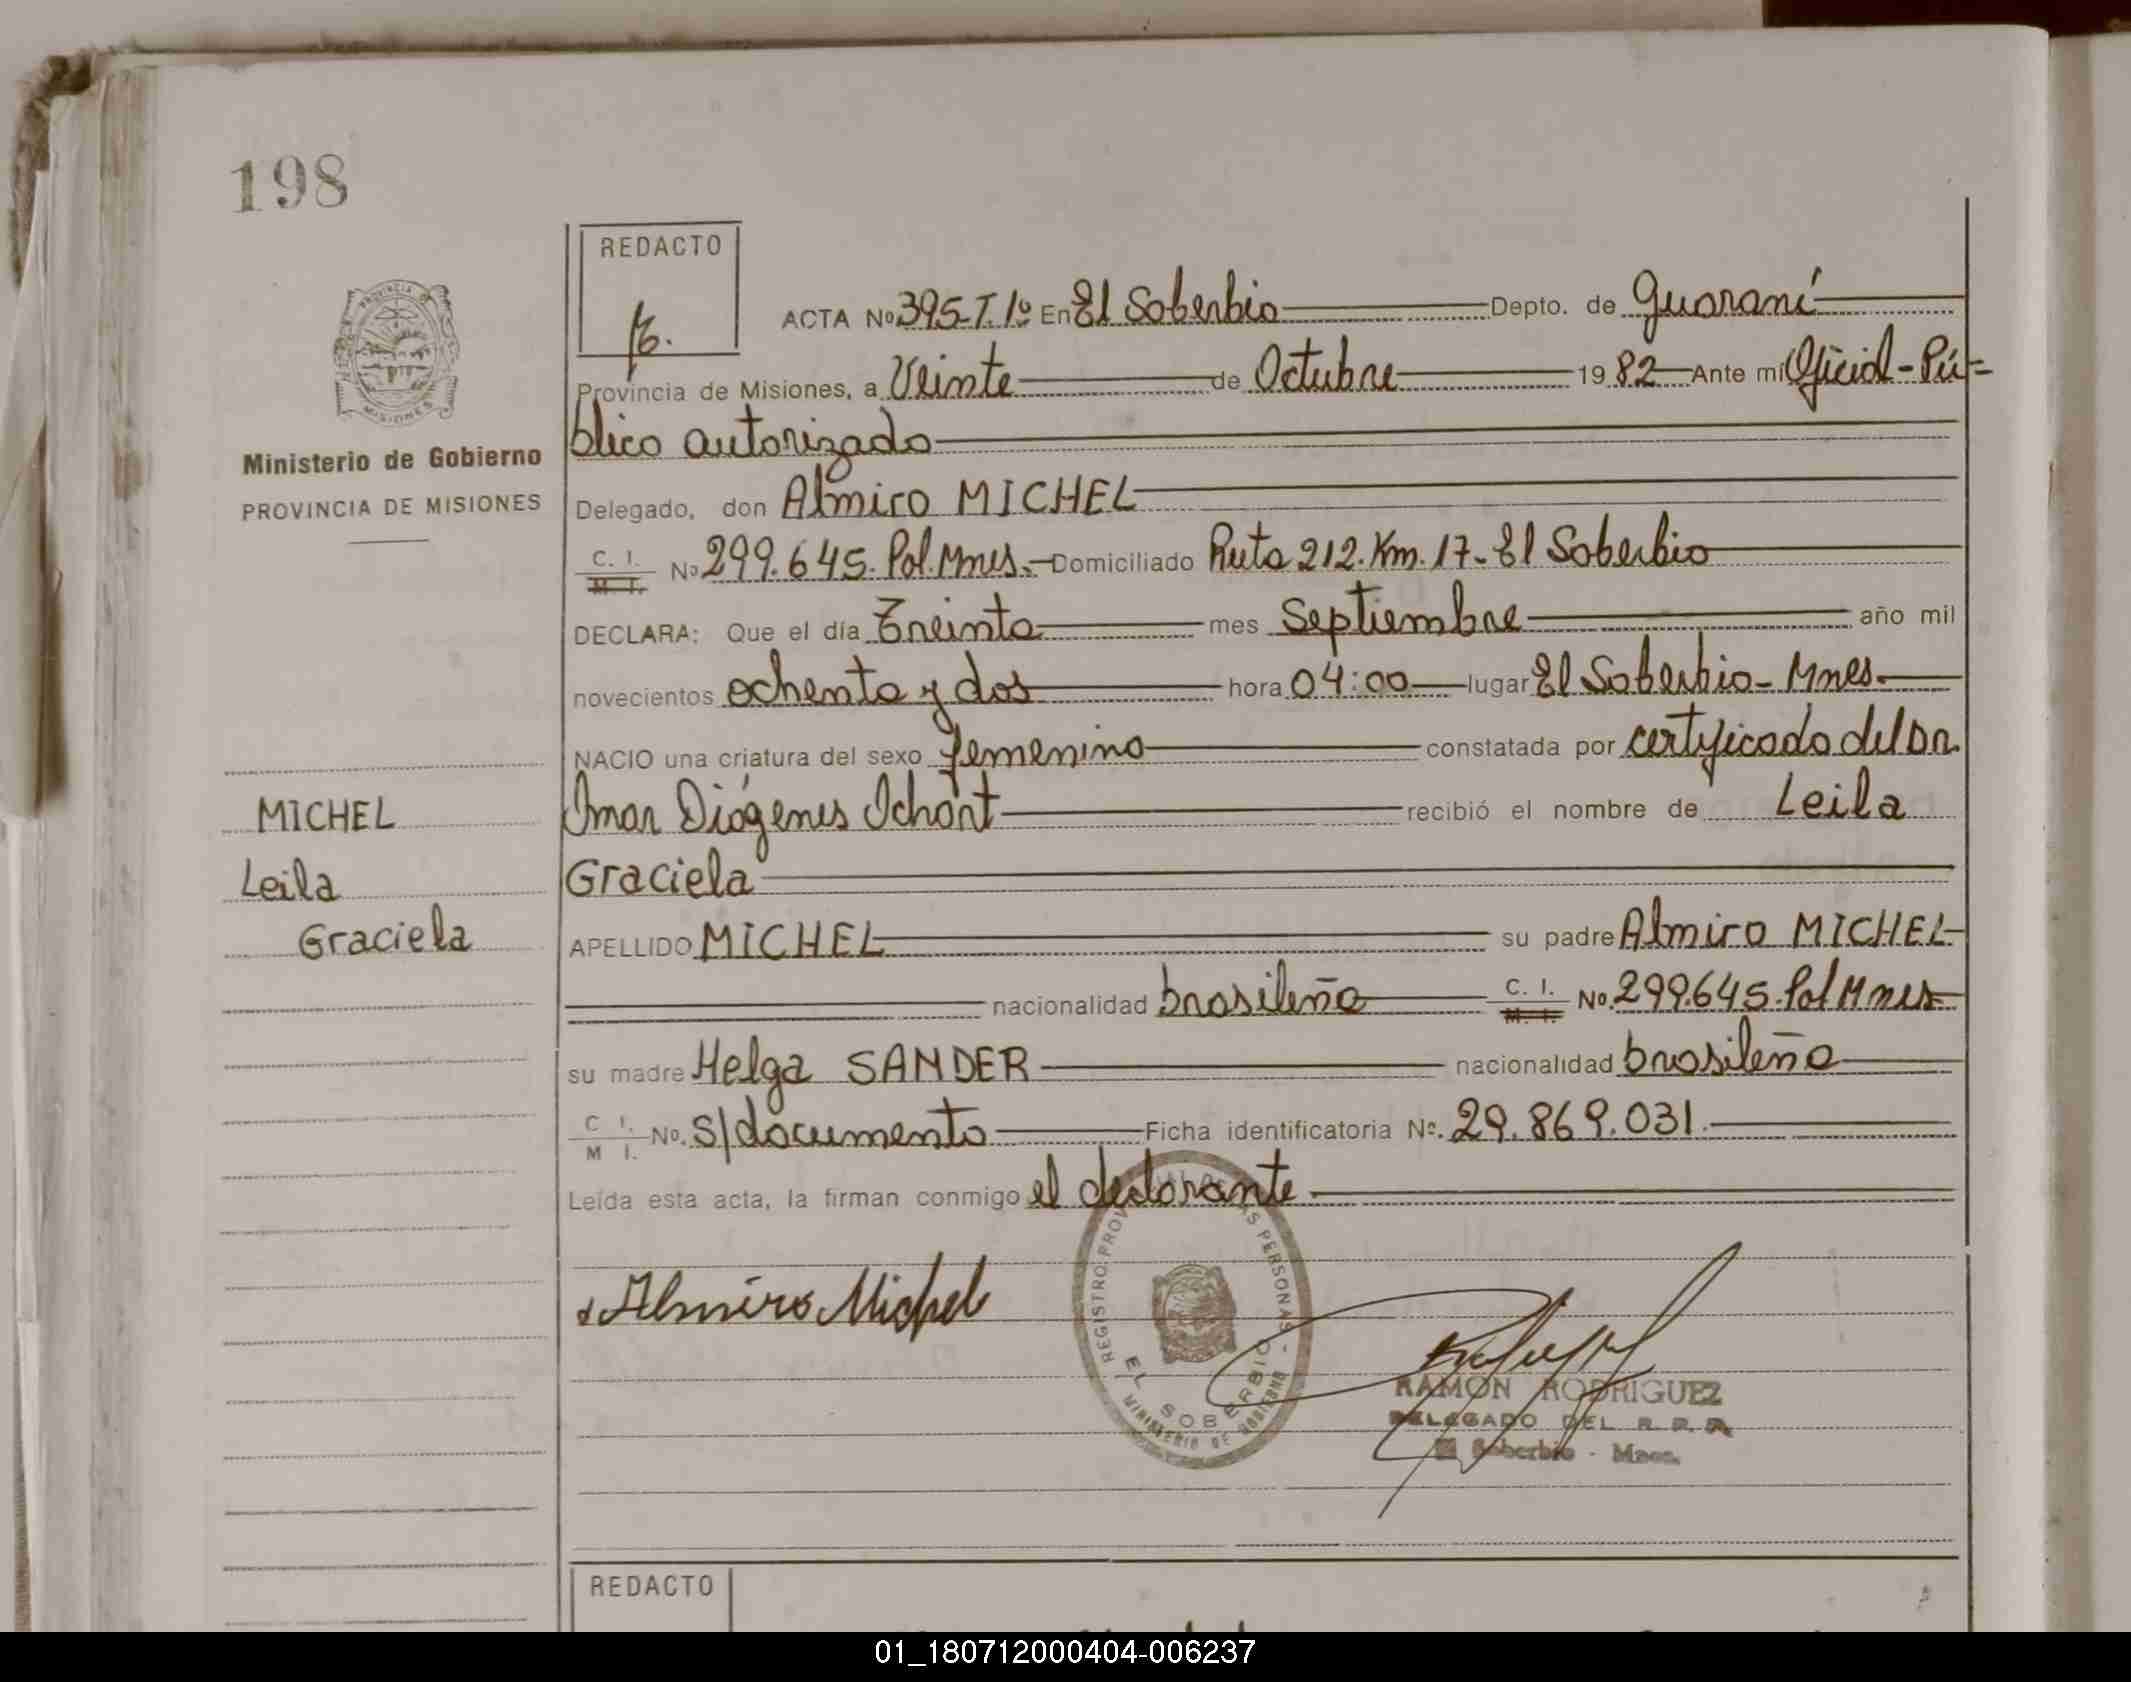 198
REDACTO
ACTA No 395-T.1º En El Soberbio Depto. de Guaraní
Provincia de Misiones, a Veinte de Octubre 19 82 Ante mi Oficial-Pú=
blico autorizado
Ministerio de Gobierno
PROVINCIA DE MISIONES
Delegado, don Almiro MICHEL
C. I. M. I. No 299.645. Pol. Mnes. Domiciliado Ruta 212. Km. 17- El Soberbio
DECLARA: Que el día Treinta mes Septiembre año mil
novecientos ochenta y dos hora 04:00 lugar El Soberbio- Mnes.
NACIO una criatura del sexo femenino constatada por certificado del Dr.
MICHEL
Leila
Graciela
Omar Diógenes Ichart recibió el nombre de Leila
Graciela
APELLIDO MICHEL su padre Almiro MICHEL
nacionalidad brasileña C. I. M. I. No. 299.645. Pol Mnes
su madre Helga SANDER nacionalidad brasileña
C I. M I. No. s/documento Ficha identificatoria Nº. 29.869.031.
Leída esta acta, la firman conmigo el declarante
Almiro Michel
REGISTRO PROV PERSONAS
EL SOBERBIO
MINISTERIO DE GOBIERNO
RAMON RODRIGUEZ
DELEGADO DEL R. P. P.
El Soberbio - Mnes.
REDACTO
01_180712000404-006237